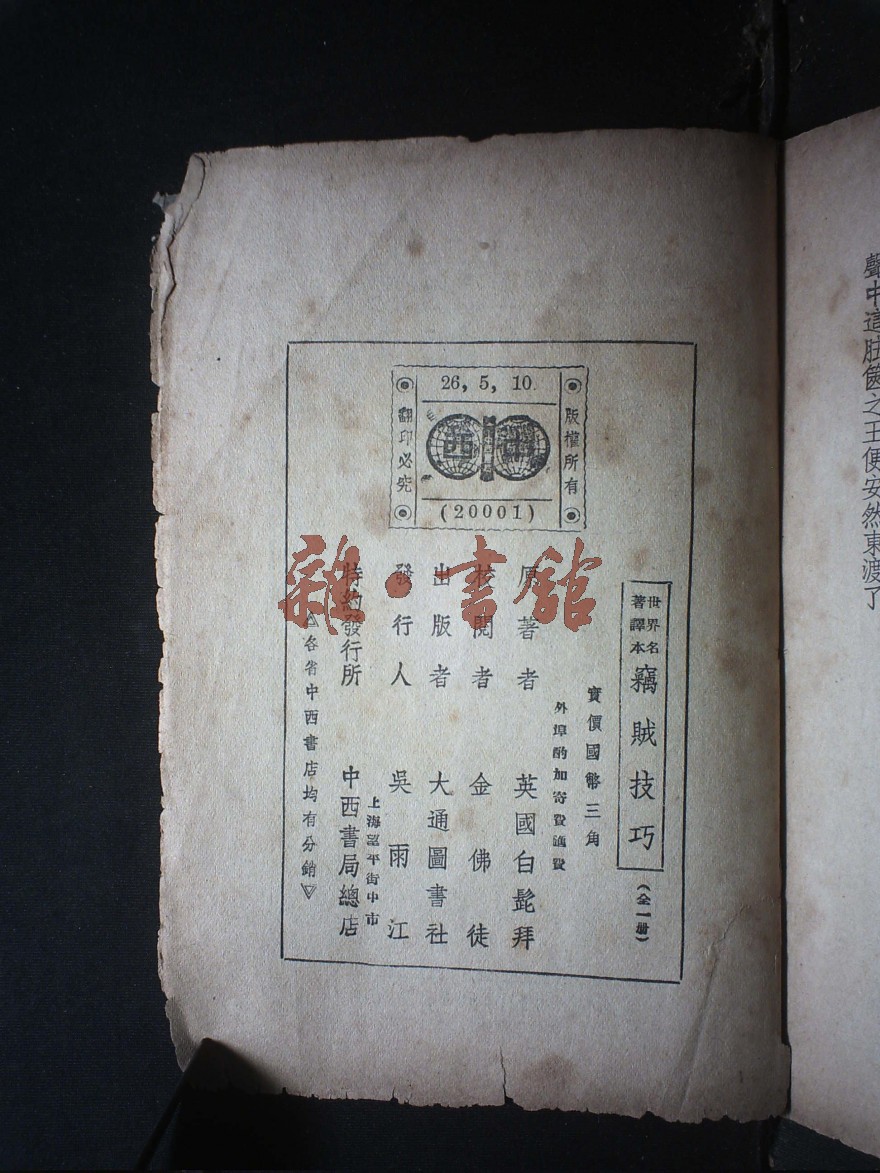 聲中這胠篋之王便安然東渡了
26, 5, 10.
版權所有
西中
翻印必究
(20001)
世界名著譯本
竊賊技巧
(全一册)
實價國幣三角
外埠酌加寄費匯費
原著者 英國白髭拜
校閱者 金佛徒
出版者 大通圖書社
發行人 吳雨江
上海望平街中市
特約發行所 中西書局總店
△各省中西書店均有分銷▽
雜·書館